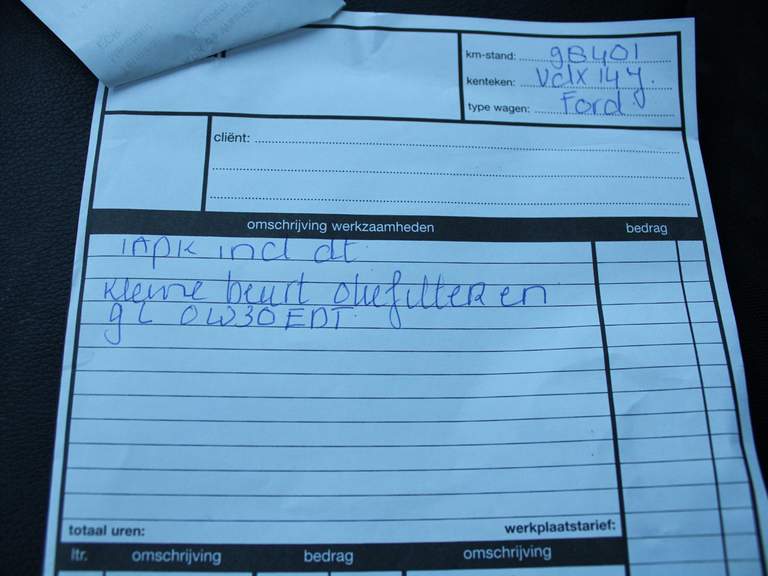 km-stand: 98401
kenteken: Vdx 14 y.
type wagen: Ford
cliënt:
omschrijving werkzaamheden bedrag
1 APK incl dt
kleine beurt oliefilter en
9 L 0W30 EDT
totaal uren: werkplaatstarief:
ltr. omschrijving bedrag omschrijving